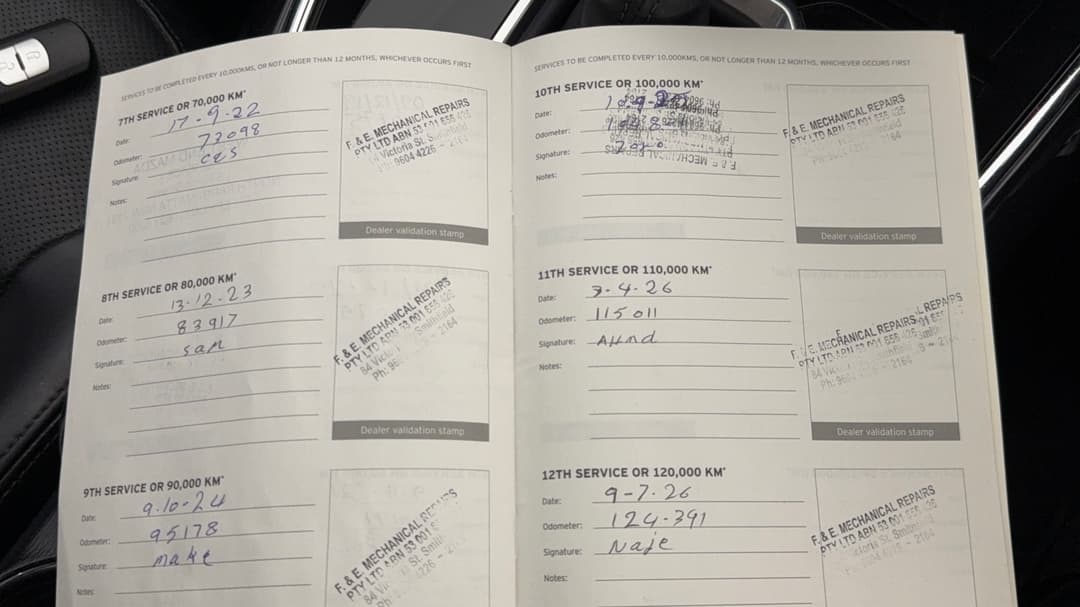 SERVICES TO BE COMPLETED EVERY 10,000KMS, OR NOT LONGER THAN 12 MONTHS, WHICHEVER OCCURS FIRST
7TH SERVICE OR 70,000 KM*
Date: 17-9-22
Odometer: 73098
Signature: ces
Notes:
F. & E. MECHANICAL REPAIRS
PTY LTD ABN 53 001 655 425
Victoria St. Smithfield
9604 4226 - 2164
Dealer validation stamp
8TH SERVICE OR 80,000 KM*
Date: 13-12-23
Odometer: 83917
Signature: sam
Notes:
F. & E. MECHANICAL REPAIRS
PTY LTD ABN 53 001 655 425
84 Smithfield
Ph: 2164
Dealer validation stamp
9TH SERVICE OR 90,000 KM*
Date: 9-10-24
Odometer: 95178
Signature:
Notes:
F. & E. MECHANICAL
PTY LTD ABN 53 001
84 St.
SERVICES TO BE COMPLETED EVERY 10,000KMS, OR NOT LONGER THAN 12 MONTHS, WHICHEVER OCCURS FIRST
10TH SERVICE OR 100,000 KM*
Date:
Odometer:
Signature:
Notes:
F. & E. MECHANICAL REPAIRS
PTY LTD ABN 53 001 655 425
Dealer validation stamp
11TH SERVICE OR 110,000 KM*
Date: 3-4-26
Odometer: 115011
Signature:
Notes:
F. & E. MECHANICAL REPAIRS
PTY LTD ABN 53 001 655 425
84
Ph: 2164
Dealer validation stamp
12TH SERVICE OR 120,000 KM*
Date: 9-7-26
Odometer: 124-391
Signature: Naje
Notes:
F. & E. MECHANICAL REPAIRS
PTY LTD ABN 53 001
St. 2164